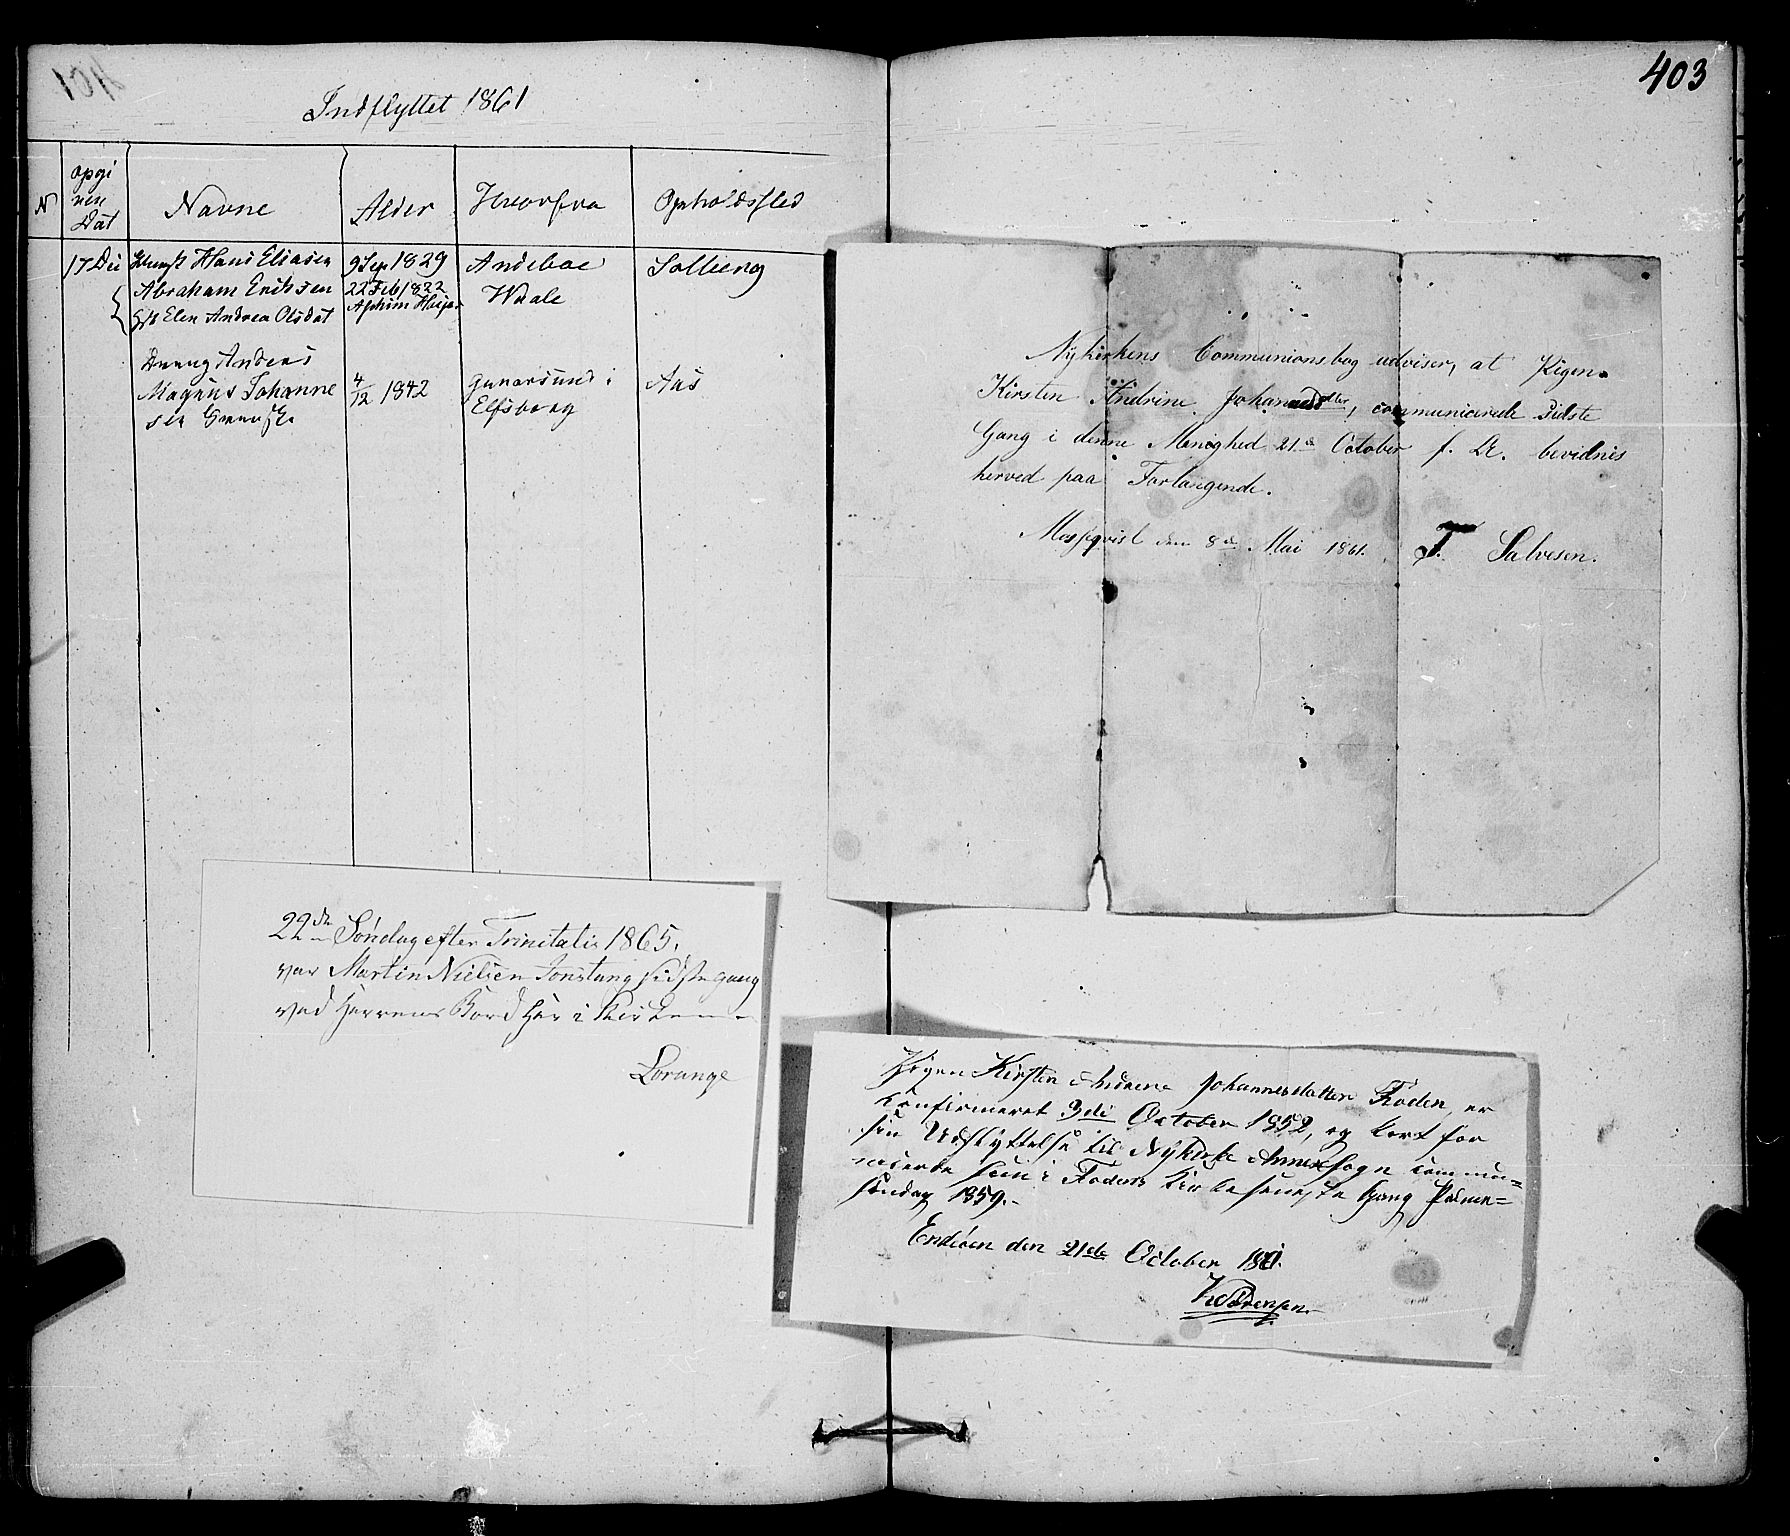 403
401
Indflyttet 1861
N
opgi
ven
Dat
Navne
Alder
Hvorfra
Opholdssted
17 Dec
Hans Eliasen
9 Sep 1829
Andeboe
Solberg
Abraham Eriksen
22 Feb 1822
Waale
Elen Andrea Olsdat
Dreng Anders
Magnus Johanne
4/12 1842
Gunarsund i
Aas
sen
Elfsborg
Nykirkens Communionsbog udviser, at Pigen
Kirsten Andrine Johannesdtter, communicerede sidste
Gang i denne Menighed 21de October f. A. bevidnes
herved paa Forlangende.
Mossqvist den 8de Mai 1861. T. Salvesen.
22de Søndag efter Trinitatis 1865.
var Martin Nielsen sidste gang
ved Herrens Bord her i Kirken
Lorange
Pigen Kirsten Andrene Johannesdatter Foden, er
confirmeret 3die October 1852, og kort før
sin Udflyttelse til Nykirke Annexsogn commu=
nicerte hun i Fodens Kirke seneste Gang Palme=
søndag 1859.
den 21de October 1861.
Sørensen